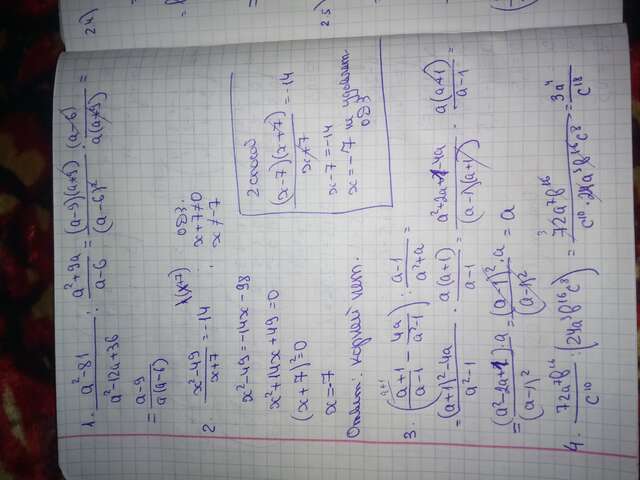 24)
25)
1. (a²-81)/(a²-12a+36) : (a²+9a)/(a-6) = (a-9)(a+9)/(a-6)² · (a-6)/(a(a+9)) =
= (a-9)/(a(a-6))
2. (x²-49)/(x+7) = -14
ОДЗ:
x+7≠0
x≠-7
x²-49=-14x-98
x²+14x+49=0
(x+7)²=0
x=-7
Ответ: корней нет.
2 способ
(x-7)(x+7)/(x+7) = -14
x-7=-14
x=-7 не удовлет.
ОДЗ
3. ((a+1)/(a-1) - 4a/(a²-1)) : (a-1)/(a²+a) =
= ((a+1)²-4a)/(a²-1) · a(a+1)/(a-1) = (a²+2a+1-4a)/((a-1)(a+1)) · a(a+1)/(a-1) =
= (a²-2a+1)·a/(a-1)² = (a-1)²·a/(a-1)² = a
4. 72a⁷b¹⁶/c¹⁰ : (24a³b¹⁶c⁸) = 72a⁷b¹⁶/(c¹⁰·24a³b¹⁶c⁸) = 3a⁴/c¹⁸